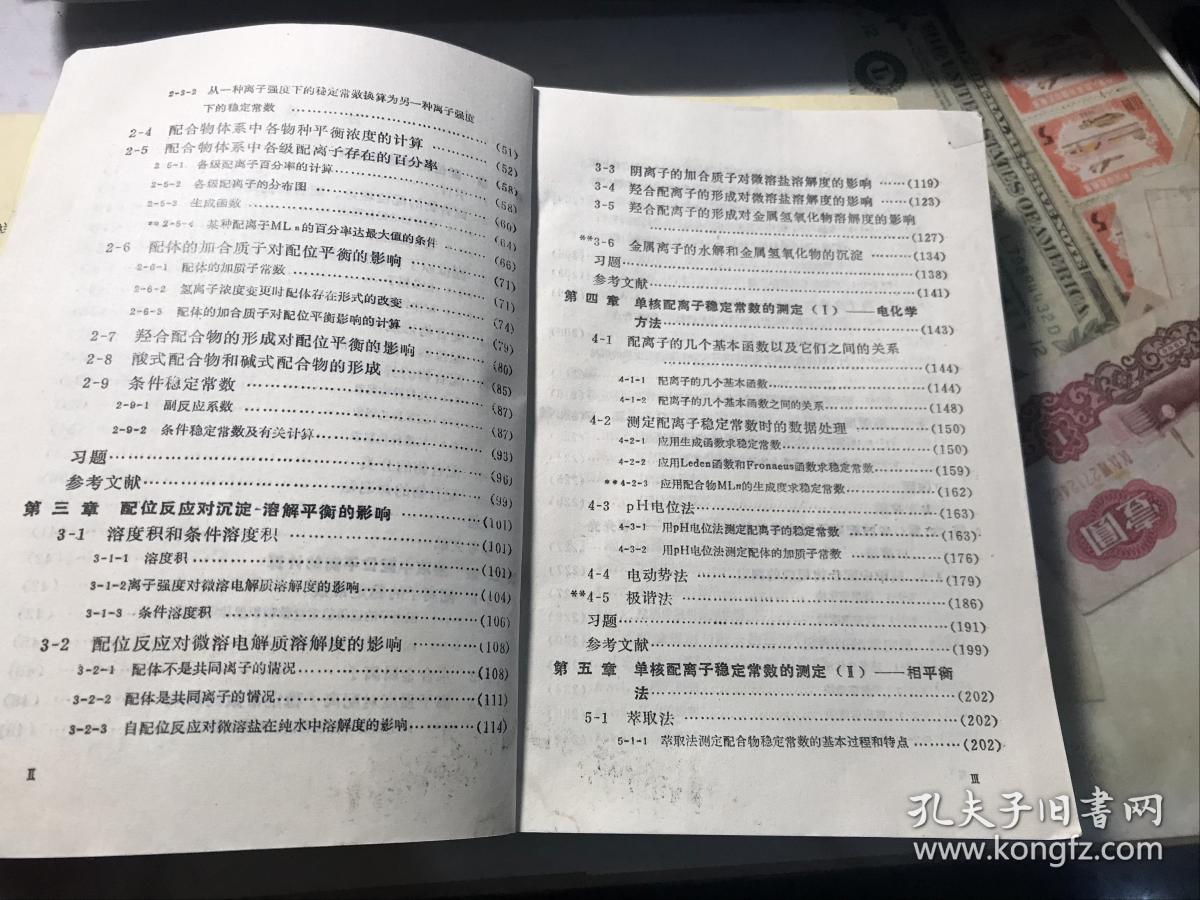 2-3-2 从一种离子强度下的稳定常数换算为另一种离子强度
下的稳定常数 ……………(51)
2-4 配合物体系中各物种平衡浓度的计算 ……………(52)
2-5 配合物体系中各级配离子存在的百分率 ……………(58)
2-5-1 各级配离子百分率的计算……………(58)
2-5-2 各级配离子的分布图 ……………(60)
2-5-3 生成函数 ……………(64)
**2-5-4 某种配离子MLn的百分率达最大值的条件 ……………(66)
2-6 配体的加合质子对配位平衡的影响 ……………(71)
2-6-1 配体的加质子常数 ……………(71)
2-6-2 氢离子浓度变更时配体存在形式的改变 ……………(74)
2-6-3 配体的加合质子对配位平衡影响的计算 ……………(79)
2-7 羟合配合物的形成对配位平衡的影响 ……………(80)
2-8 酸式配合物和碱式配合物的形成 ……………(85)
2-9 条件稳定常数 ……………(87)
2-9-1 副反应系数 ……………(87)
2-9-2 条件稳定常数及有关计算……………(93)
习题……………(96)
参考文献……………(99)
第三章 配位反应对沉淀-溶解平衡的影响 ……………(101)
3-1 溶度积和条件溶度积 ……………(101)
3-1-1 溶度积 ……………(101)
3-1-2离子强度对微溶电解质溶解度的影响……………(104)
3-1-3 条件溶度积 ……………(106)
3-2 配位反应对微溶电解质溶解度的影响 ……………(108)
3-2-1 配体不是共同离子的情况……………(108)
3-2-2 配体是共同离子的情况……………(111)
3-2-3 自配位反应对微溶盐在纯水中溶解度的影响……………(114)
Ⅱ
3-3 阴离子的加合质子对微溶盐溶解度的影响 ……(119)
3-4 羟合配离子的形成对微溶盐溶解度的影响 ……(123)
3-5 羟合配离子的形成对金属氢氧化物溶解度的影响
……………(127)
**3-6 金属离子的水解和金属氢氧化物的沉淀 ………(134)
习题……………(138)
参考文献……………(141)
第四章 单核配离子稳定常数的测定(Ⅰ)——电化学
方法……………(143)
4-1 配离子的几个基本函数以及它们之间的关系
……………(144)
4-1-1 配离子的几个基本函数……………(144)
4-1-2 配离子的几个基本函数之间的关系……………(148)
4-2 测定配离子稳定常数时的数据处理 ……………(150)
4-2-1 应用生成函数求稳定常数……………(150)
4-2-2 应用Leden函数和Fronaeus函数求稳定常数……………(159)
**4-2-3 应用配合物MLn的生成度求稳定常数……………(162)
4-3 pH电位法……………(163)
4-3-1 用pH电位法测定配离子的稳定常数……………(163)
4-3-2 用pH电位法测定配体的加质子常数 ……………(176)
4-4 电动势法 ……………(179)
**4-5 极谱法 ……………(186)
习题……………(191)
参考文献……………(199)
第五章 单核配离子稳定常数的测定(Ⅱ)——相平衡
法……………(202)
5-1 萃取法 ……………(202)
5-1-1 萃取法测定配合物稳定常数的基本过程和特点 ………(202)
Ⅲ
壹圆
孔夫子旧书网
www.kongfz.com